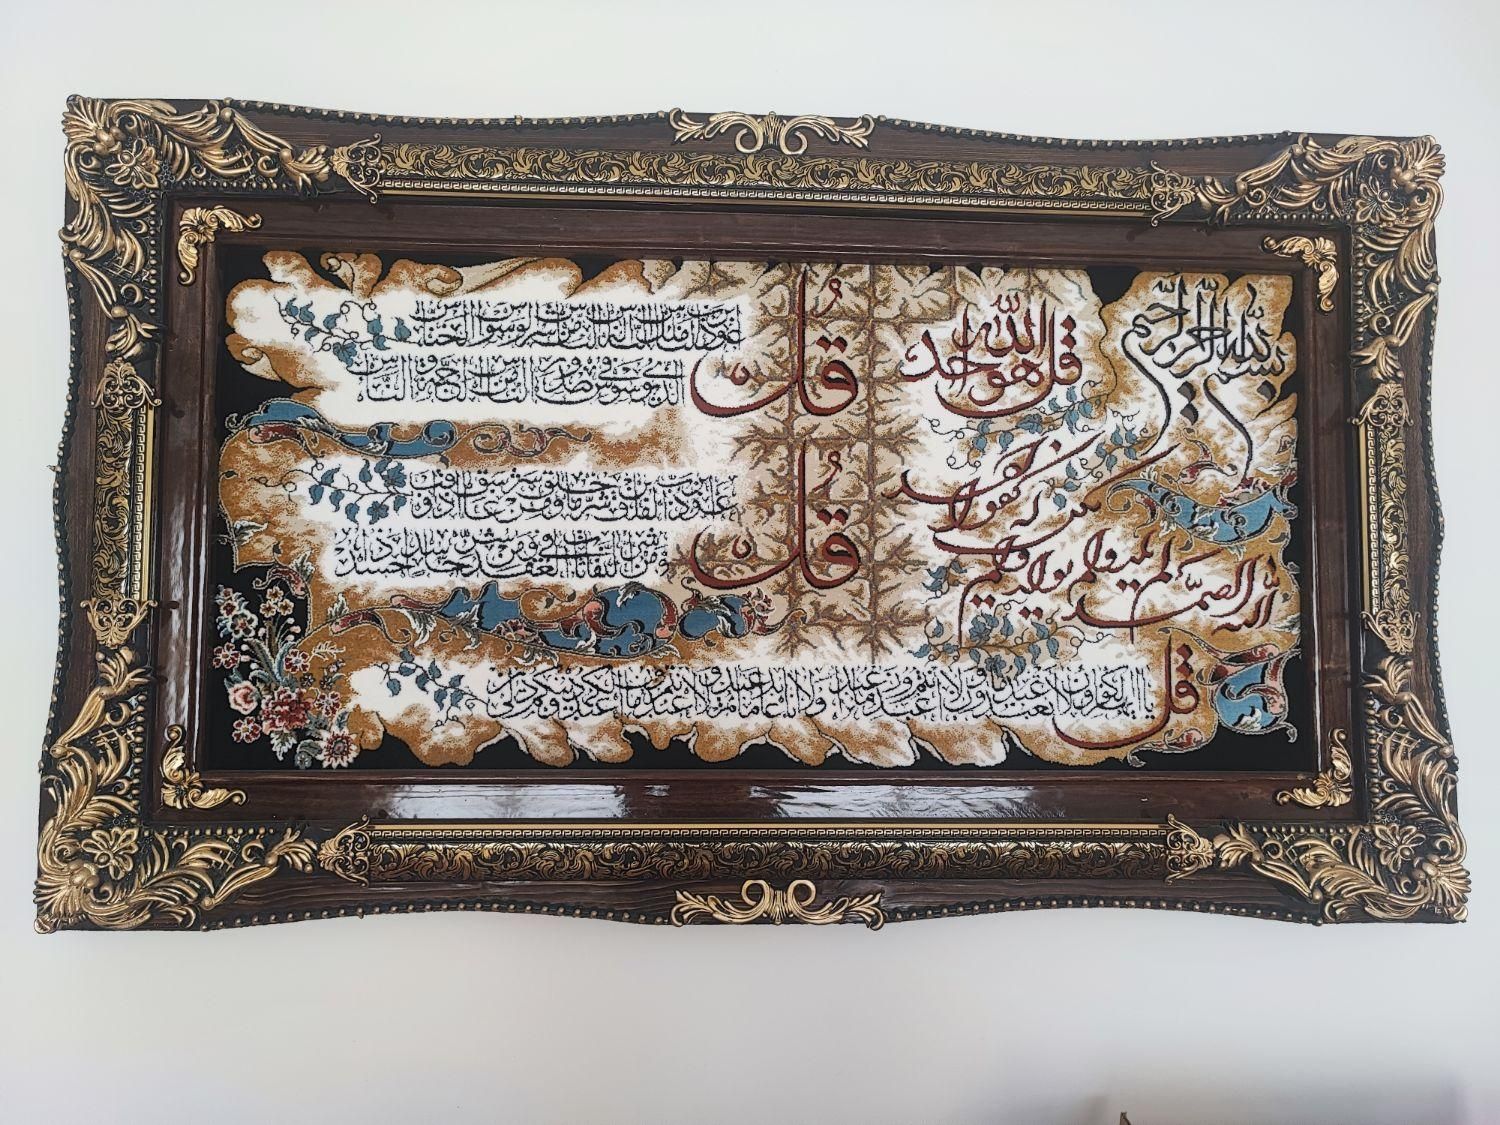 بسم الله الرحمن الرحیم
قل هو الله احد
الله الصمد لم یلد ولم یولد ولم
یکن له کفوا احد
قل اعوذ برب الناس ملک الناس اله الناس من شر الوسواس الخناس
الذی یوسوس فی صدور الناس من الجنة و الناس
قل اعوذ برب الفلق من شر ما خلق و من شر غاسق اذا وقب
و من شر النفاثات فی العقد و من شر حاسد اذا حسد
قل یا ایها الکافرون لا اعبد ما تعبدون ولا انتم عابدون ما اعبد ولا انا عابد ما عبدتم ولا انتم عابدون ما اعبد لکم دینکم ولی دین